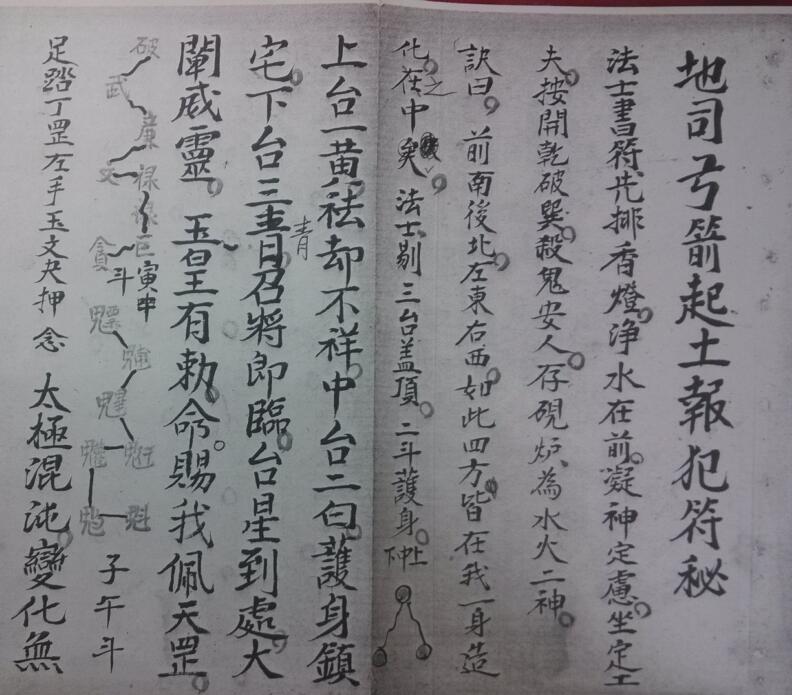 地司弓箭起土報犯符秘
法士書符先排香燈淨水在前凝神定慮坐定工
夫按開乾破巽殺鬼安人存硯炉為水火二神
訣曰前南後北左東右西如此四方皆在我一身造
化在之中矣法士剔三台盖頂二斗護身
上
中
下
上台一黄祛却不祥中台二白護身鎮
宅下台三青召將即臨台星到處大
青
闡威靈玉皇有勅命賜我佩天罡
破
武
廉
文 祿
巨 寅申
貪 斗
魁
子午斗
足踏丁罡左手玉文决押念太極混沌變化無